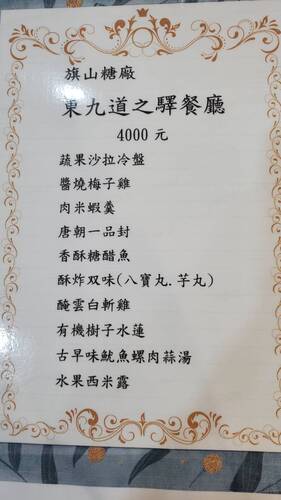 旗山糖廠
東九道之驛餐廳
4000 元
蔬果沙拉冷盤
醬燒梅子雞
肉米蝦羹
唐朝一品封
香酥糖醋魚
酥炸双味(八寶丸.芋丸)
醃雲白斬雞
有機樹子水蓮
古早味魷魚螺肉蒜湯
水果西米露